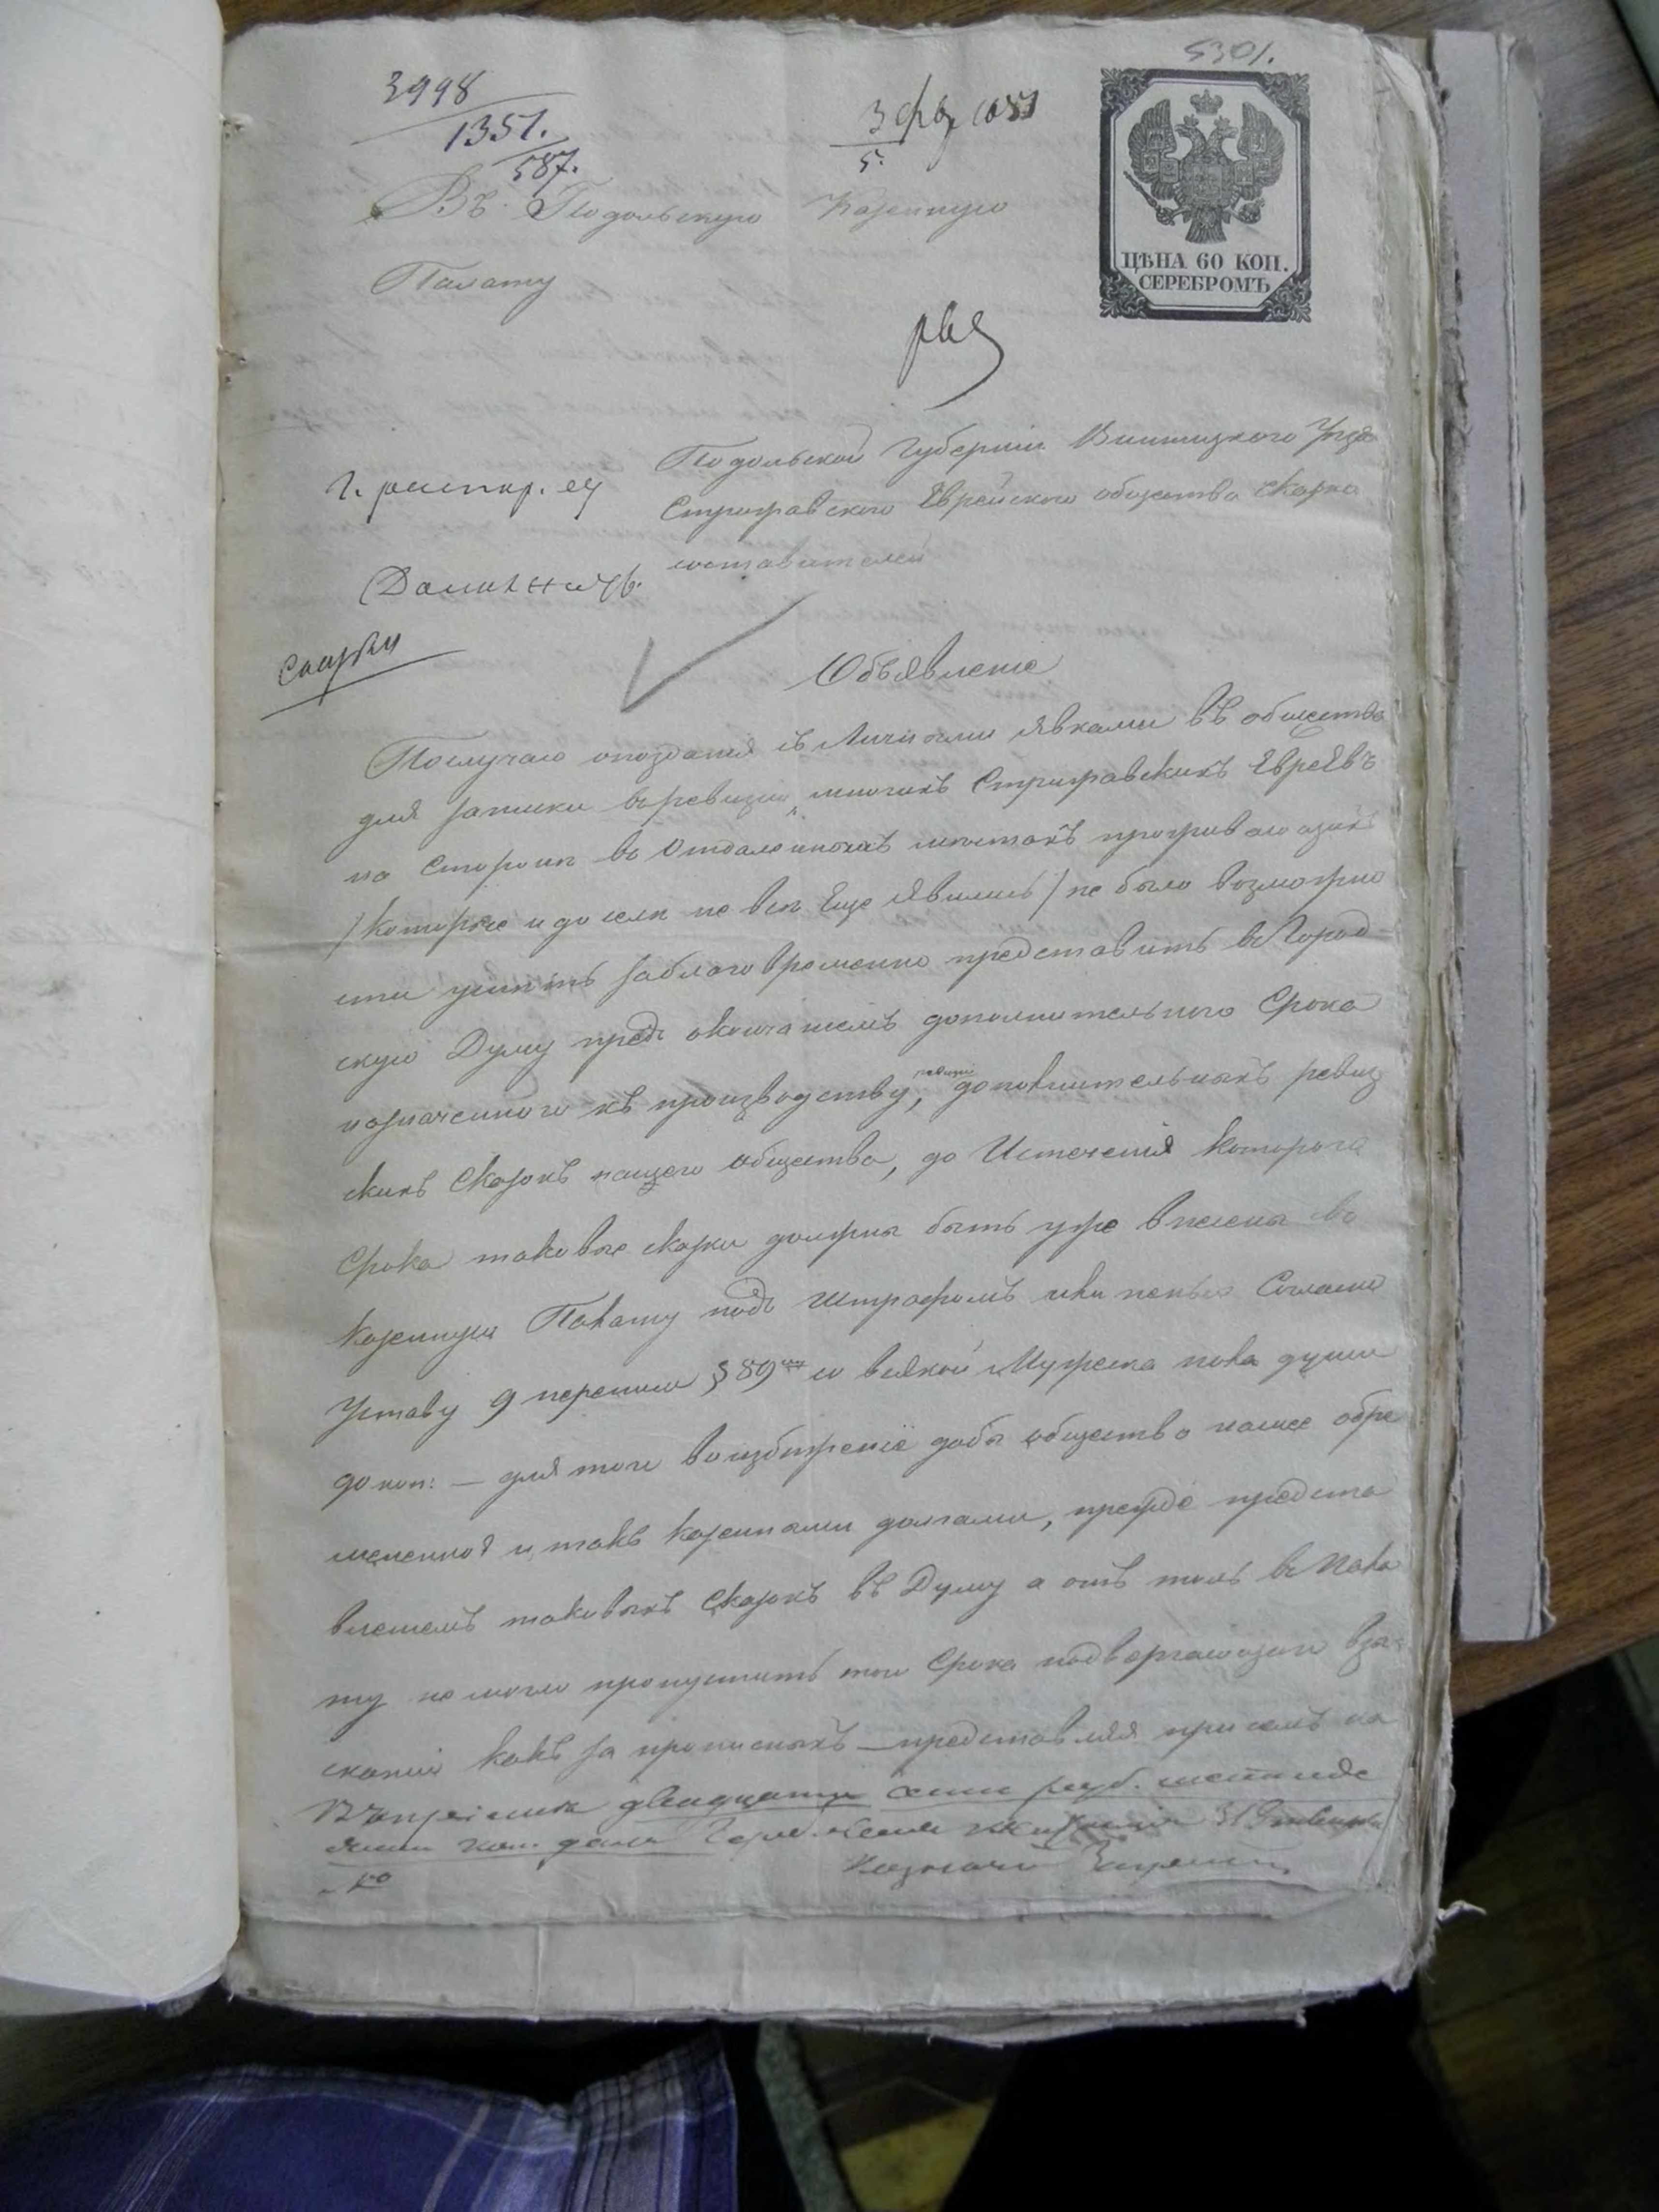 5301.
3998
1351.
587.
3 фев 1851
5.
ЦѢНА 60 КОП.
СЕРЕБРОМЪ
Въ Подольскую Казенную
Палату
Подольской Губерніи Винницкого Уезда
Стрижавского Еврейского общества Сказко
составителей
Объявленіе
По случаю опозданія съ Личными Явками въ общество
для записки въ ревизію многихъ Стрижавскихъ Евреевъ
на Стороне во Отдаленныхъ местахъ проживающихъ
/которые и до селе не все Еще Явились/ не было возможно
сти успеть заблаговременно представить въ Город
скую Думу предъ окончаніемъ дополнительного Срока
назначенного къ производству, ревизіи дополнительныхъ ревиз
скихъ Сказокъ нашего общества, до Истеченія которого
Срока таковые сказки должны быть уже внесены въ
Казенную Палату подъ штрафомъ Согласно
Уставу 9 переписи § 89 со всякой Мужеска пола души
до коп: — для того во избежреніе дабы общество наше обре
мененное и такъ казенными долгами, прежде предста
вленіемъ таковыхъ Сказокъ въ Думу а отъ толь въ Пала
ту не могло пропустить того Срока подвергающаго взы-
сканію какъ за прописныхъ — представляя при семъ на
двадцать руб.
Казначей